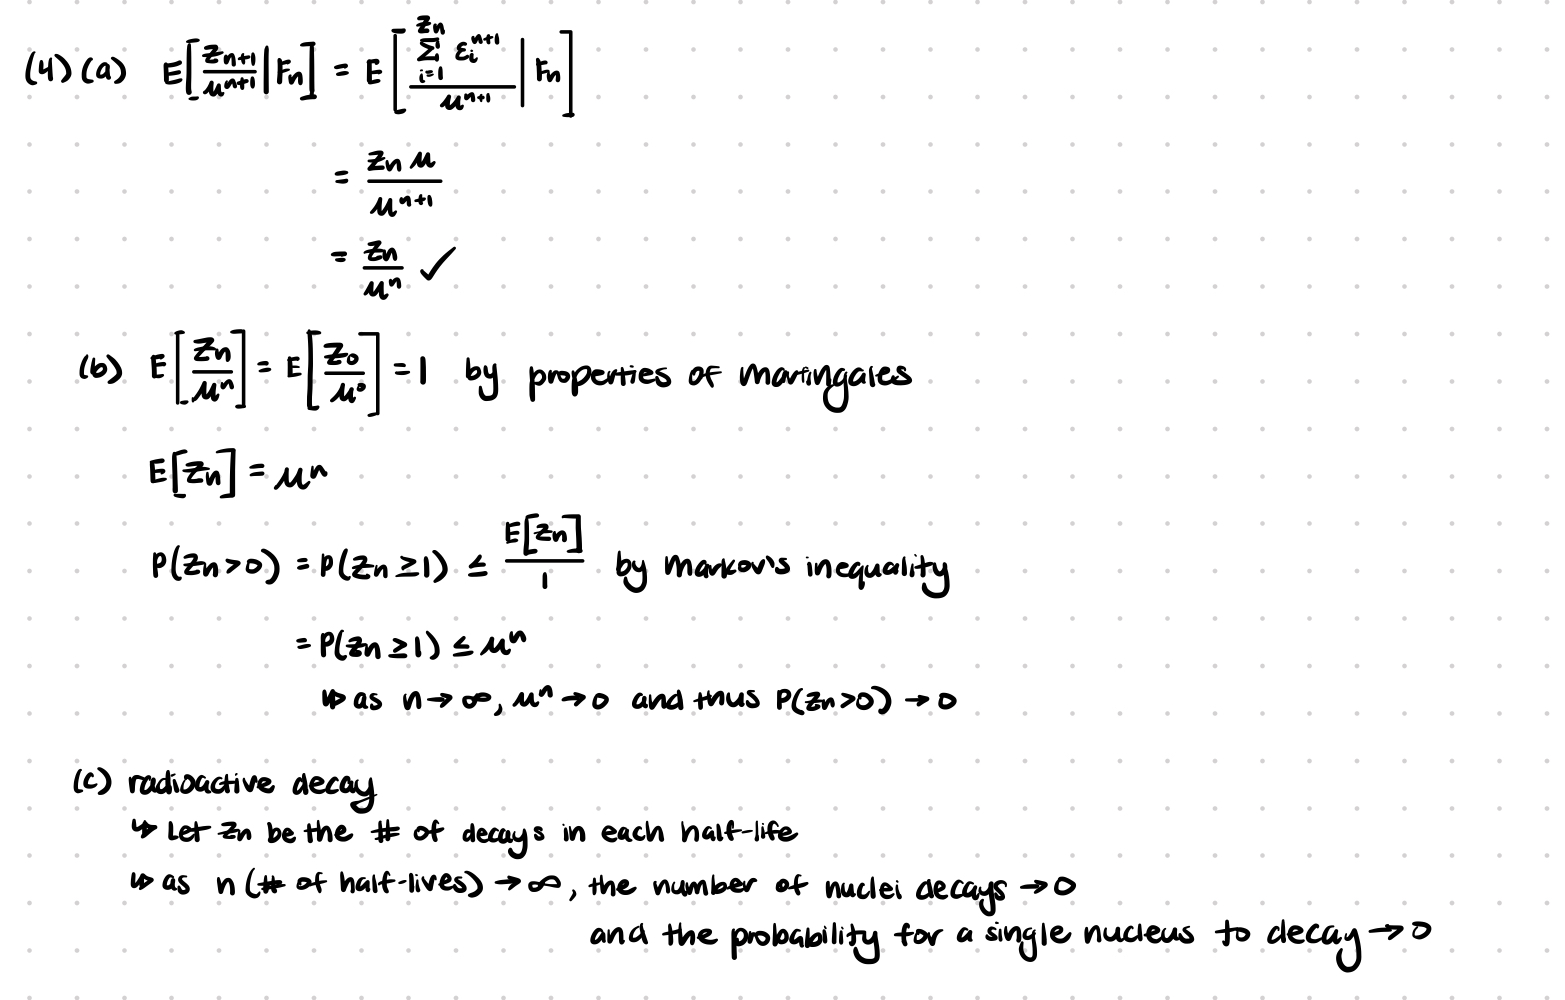 (4) (a) E[Zn+1/μ^n+1 | Fn] = E[∑_{i=1}^{Zn} ε_i^{n+1} / μ^n+1 | Fn]
= Zn μ / μ^n+1
= Zn / μ^n ✓
(b) E[Zn/μ^n] = E[Z0/μ^0] = 1 by properties of martingales
E[Zn] = μ^n
P(Zn > 0) = P(Zn ≥ 1) ≤ E[Zn]/1 by Markov's inequality
= P(Zn ≥ 1) ≤ μ^n
↳ as n → ∞, μ^n → 0 and thus P(Zn > 0) → 0
(c) radioactive decay
↳ Let Zn be the # of decays in each half-life
↳ as n (# of half-lives) → ∞, the number of nuclei decays → 0
and the probability for a single nucleus to decay → 0